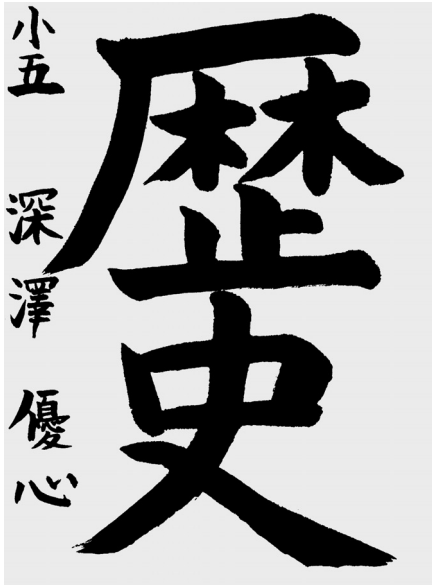 歴史
小五 深澤 優心